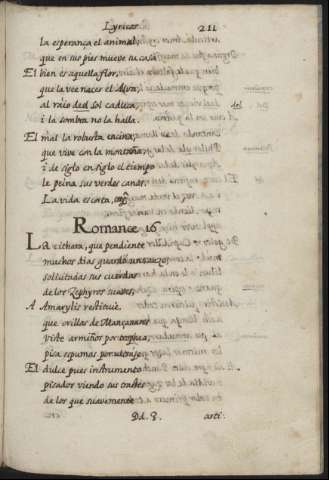 Lyricas 211
la esperança el animal,
que en sus pies mueve su casa
El bien es aquella flor,
que la vee nacer el Alva,
al raio del sol caduca,
i la sombra no la halla.
El mal la robusta encina,
que vive con la montaña,
i de siglo en siglo el tiempo
le peina sus verdes canas.
La vida es cierva,
Romance 16
La cithara, que pendiente
muchos dias guardó un sauze
solicitadas sus cuerdas
de los Zephyros suaves,
A Amarylis restituie,
que orillas de Mançanares
viste armiños por trophea,
pisa espumas por ultraje,
El dulce pues instrumento
pisador viendo sus trastes
de los que suavemente
Dd. 8. arti: